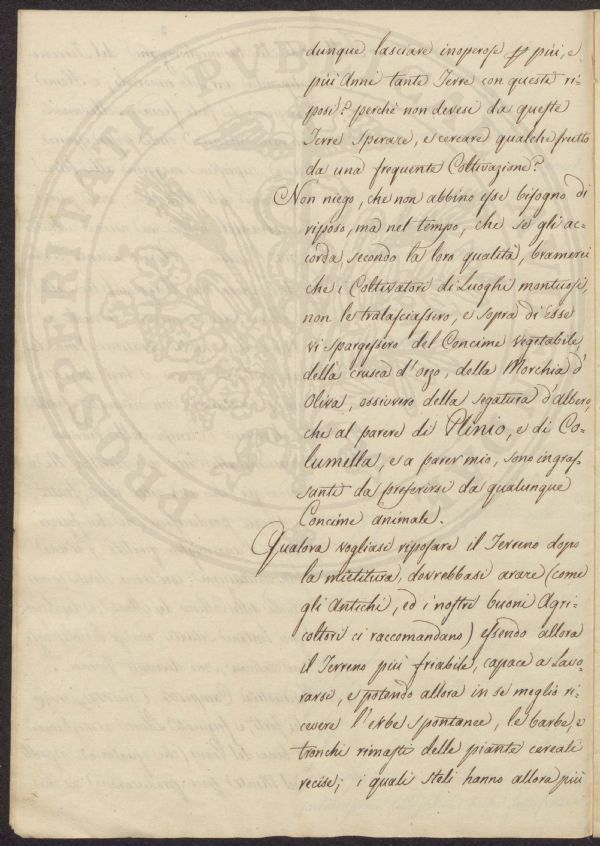 dunque lasciare inoperose pp più, e
più Anni tante Terre con queste ri=
posi? perchè non devesi da queste
Terre sperare, e cercare qualche frutto
da una frequente Coltivazione?
Non niego, che non abbino esse bisogno di
riposo, ma nel tempo, che se gli ac=
corda, secondo la loro qualità, bramerei
che i Coltivatori di Luoghi montuosi,
non le tralasciassero, e sopra di Esse
vi spargessero del Concime vegetabile,
della crusca d'orzo, della Morchia d'
Oliva, ossivvero della segatura d'Albero,
che al parere di Plinio, e di Co=
lumella, e a parer mio, sono ingras=
santi da preferirsi da qualunque
Concime animale.
Qualora vogliasi riposare il Terreno dopo
la mietitura, dovrebbasi arare (come
gli Antichi, ed i nostri buoni Agri=
coltori ci raccomandano) essendo allora
il Terreno più friabile, capace a Lavo=
rarsi, e potendo allora in se meglio ri=
cevere l'erbe spontanee, le barbe, e
tronchi rimasti delle piante cereali
recise; i quali steli hanno allora più
PROSPERITATI PVBLIC